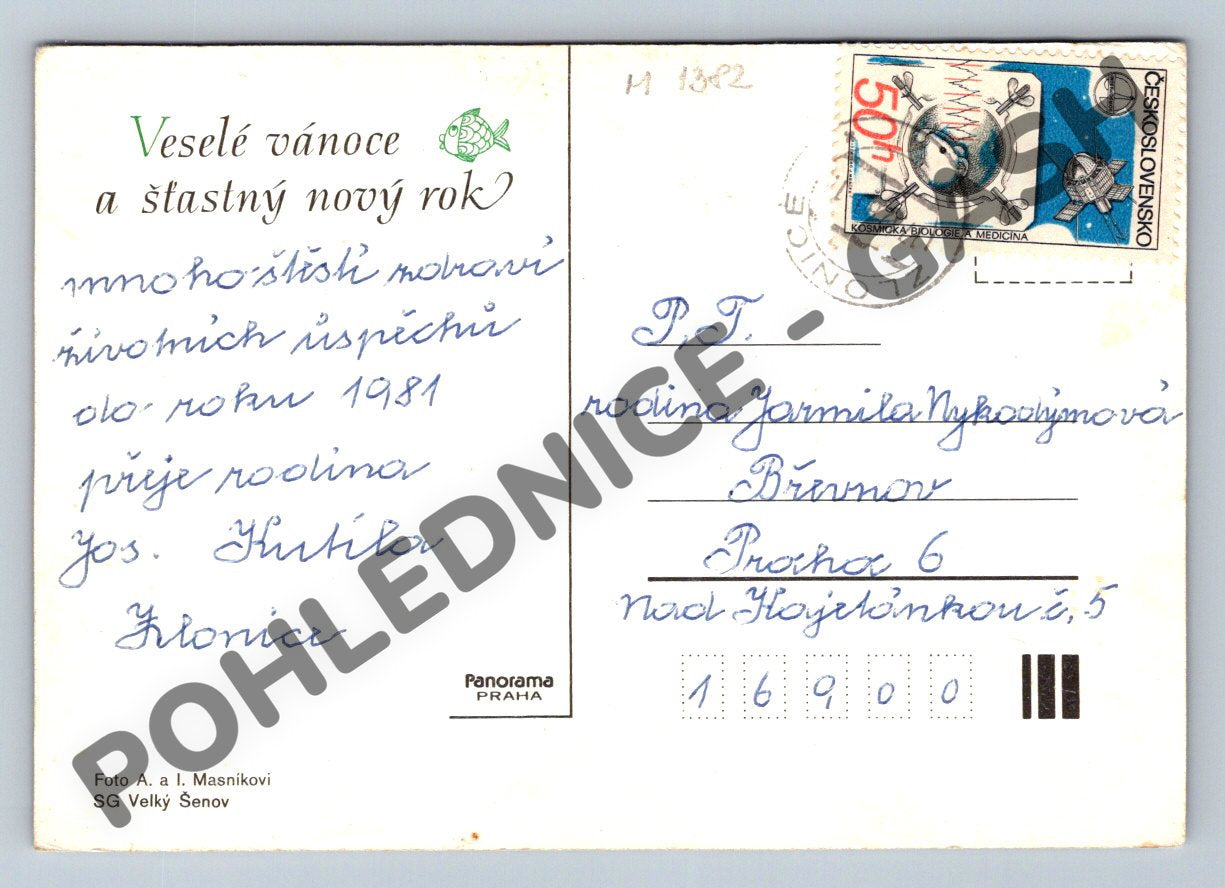 Veselé vánoce
a šťastný nový rok
mnoho štěstí zdraví
životních úspěchů
do roku 1981
přeje rodina
Jos. Kutíla
Zlonice
Panorama
PRAHA
Foto A. a I. Masníkovi
SG Velký Šenov
M 1382
ČESKOSLOVENSKO
50h
KOSMICKÁ BIOLOGIE A MEDICÍNA
ZLONICE
P. T.
rodina Jarmila Nykodýmová
Břevnov
Praha 6
Nad Kajetánkou č, 5
1 6 9 0 0
POHLEDNICE - GASH